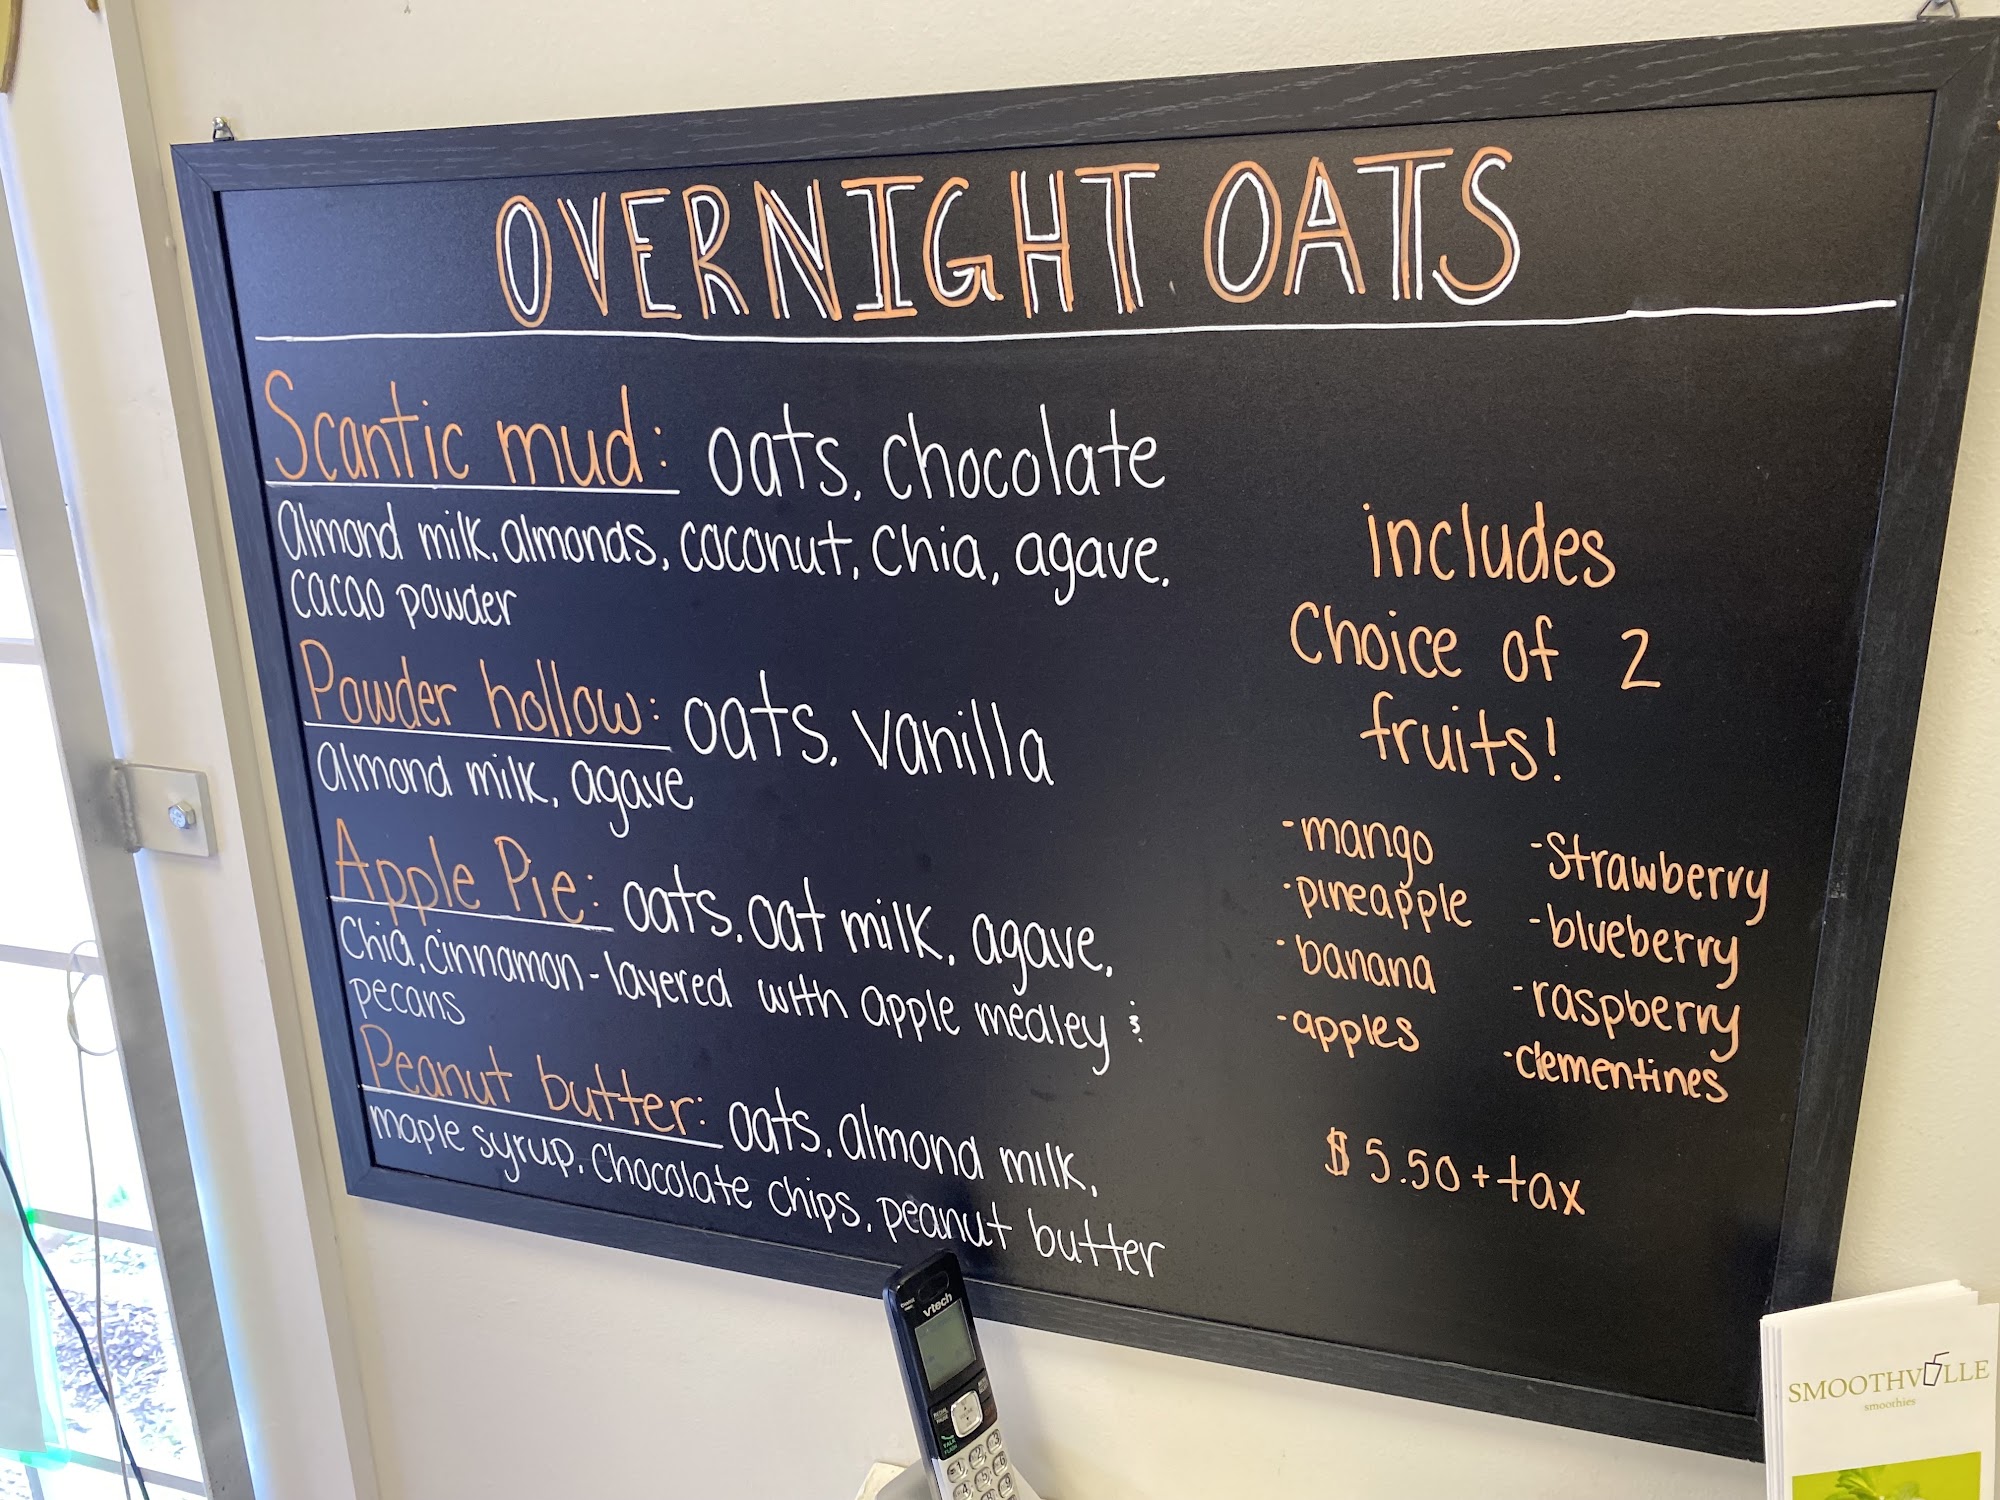 OVERNIGHT OATS
Scantic mud: oats, chocolate
almond milk, almonds, coconut, chia, agave,
cacao powder
Powder hollow: oats, vanilla
almond milk, agave
Apple Pie: oats, oat milk, agave,
Chia, cinnamon - layered with apple medley &
pecans
Peanut butter: oats, almond milk,
maple syrup, chocolate chips, peanut butter
includes
Choice of 2
fruits!
-mango
-pineapple
-banana
-apples
-Strawberry
-blueberry
-raspberry
-clementines
$5.50 + tax
vtech
SMOOTHVILLE
smoothies